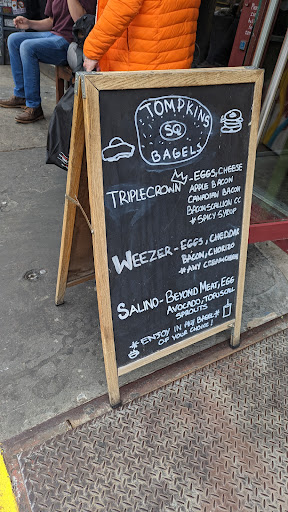 TOMPKINS
SQ
BAGELS
TRIPLECROWN - EGGS, CHEESE
APPLE BACON
CANADIAN BACON
BACON SCALLION CC
* SPICY SYRUP
WEEZER - EGGS, CHEDDAR
BACON, CHORIZO
* ANY CREAM CHEESE
SALINO - BEYOND MEAT, EGG
AVOCADO, TOFU SCALL
SPROUTS
* ENJOY IN ANY BAGEL *
OF YOUR CHOICE!